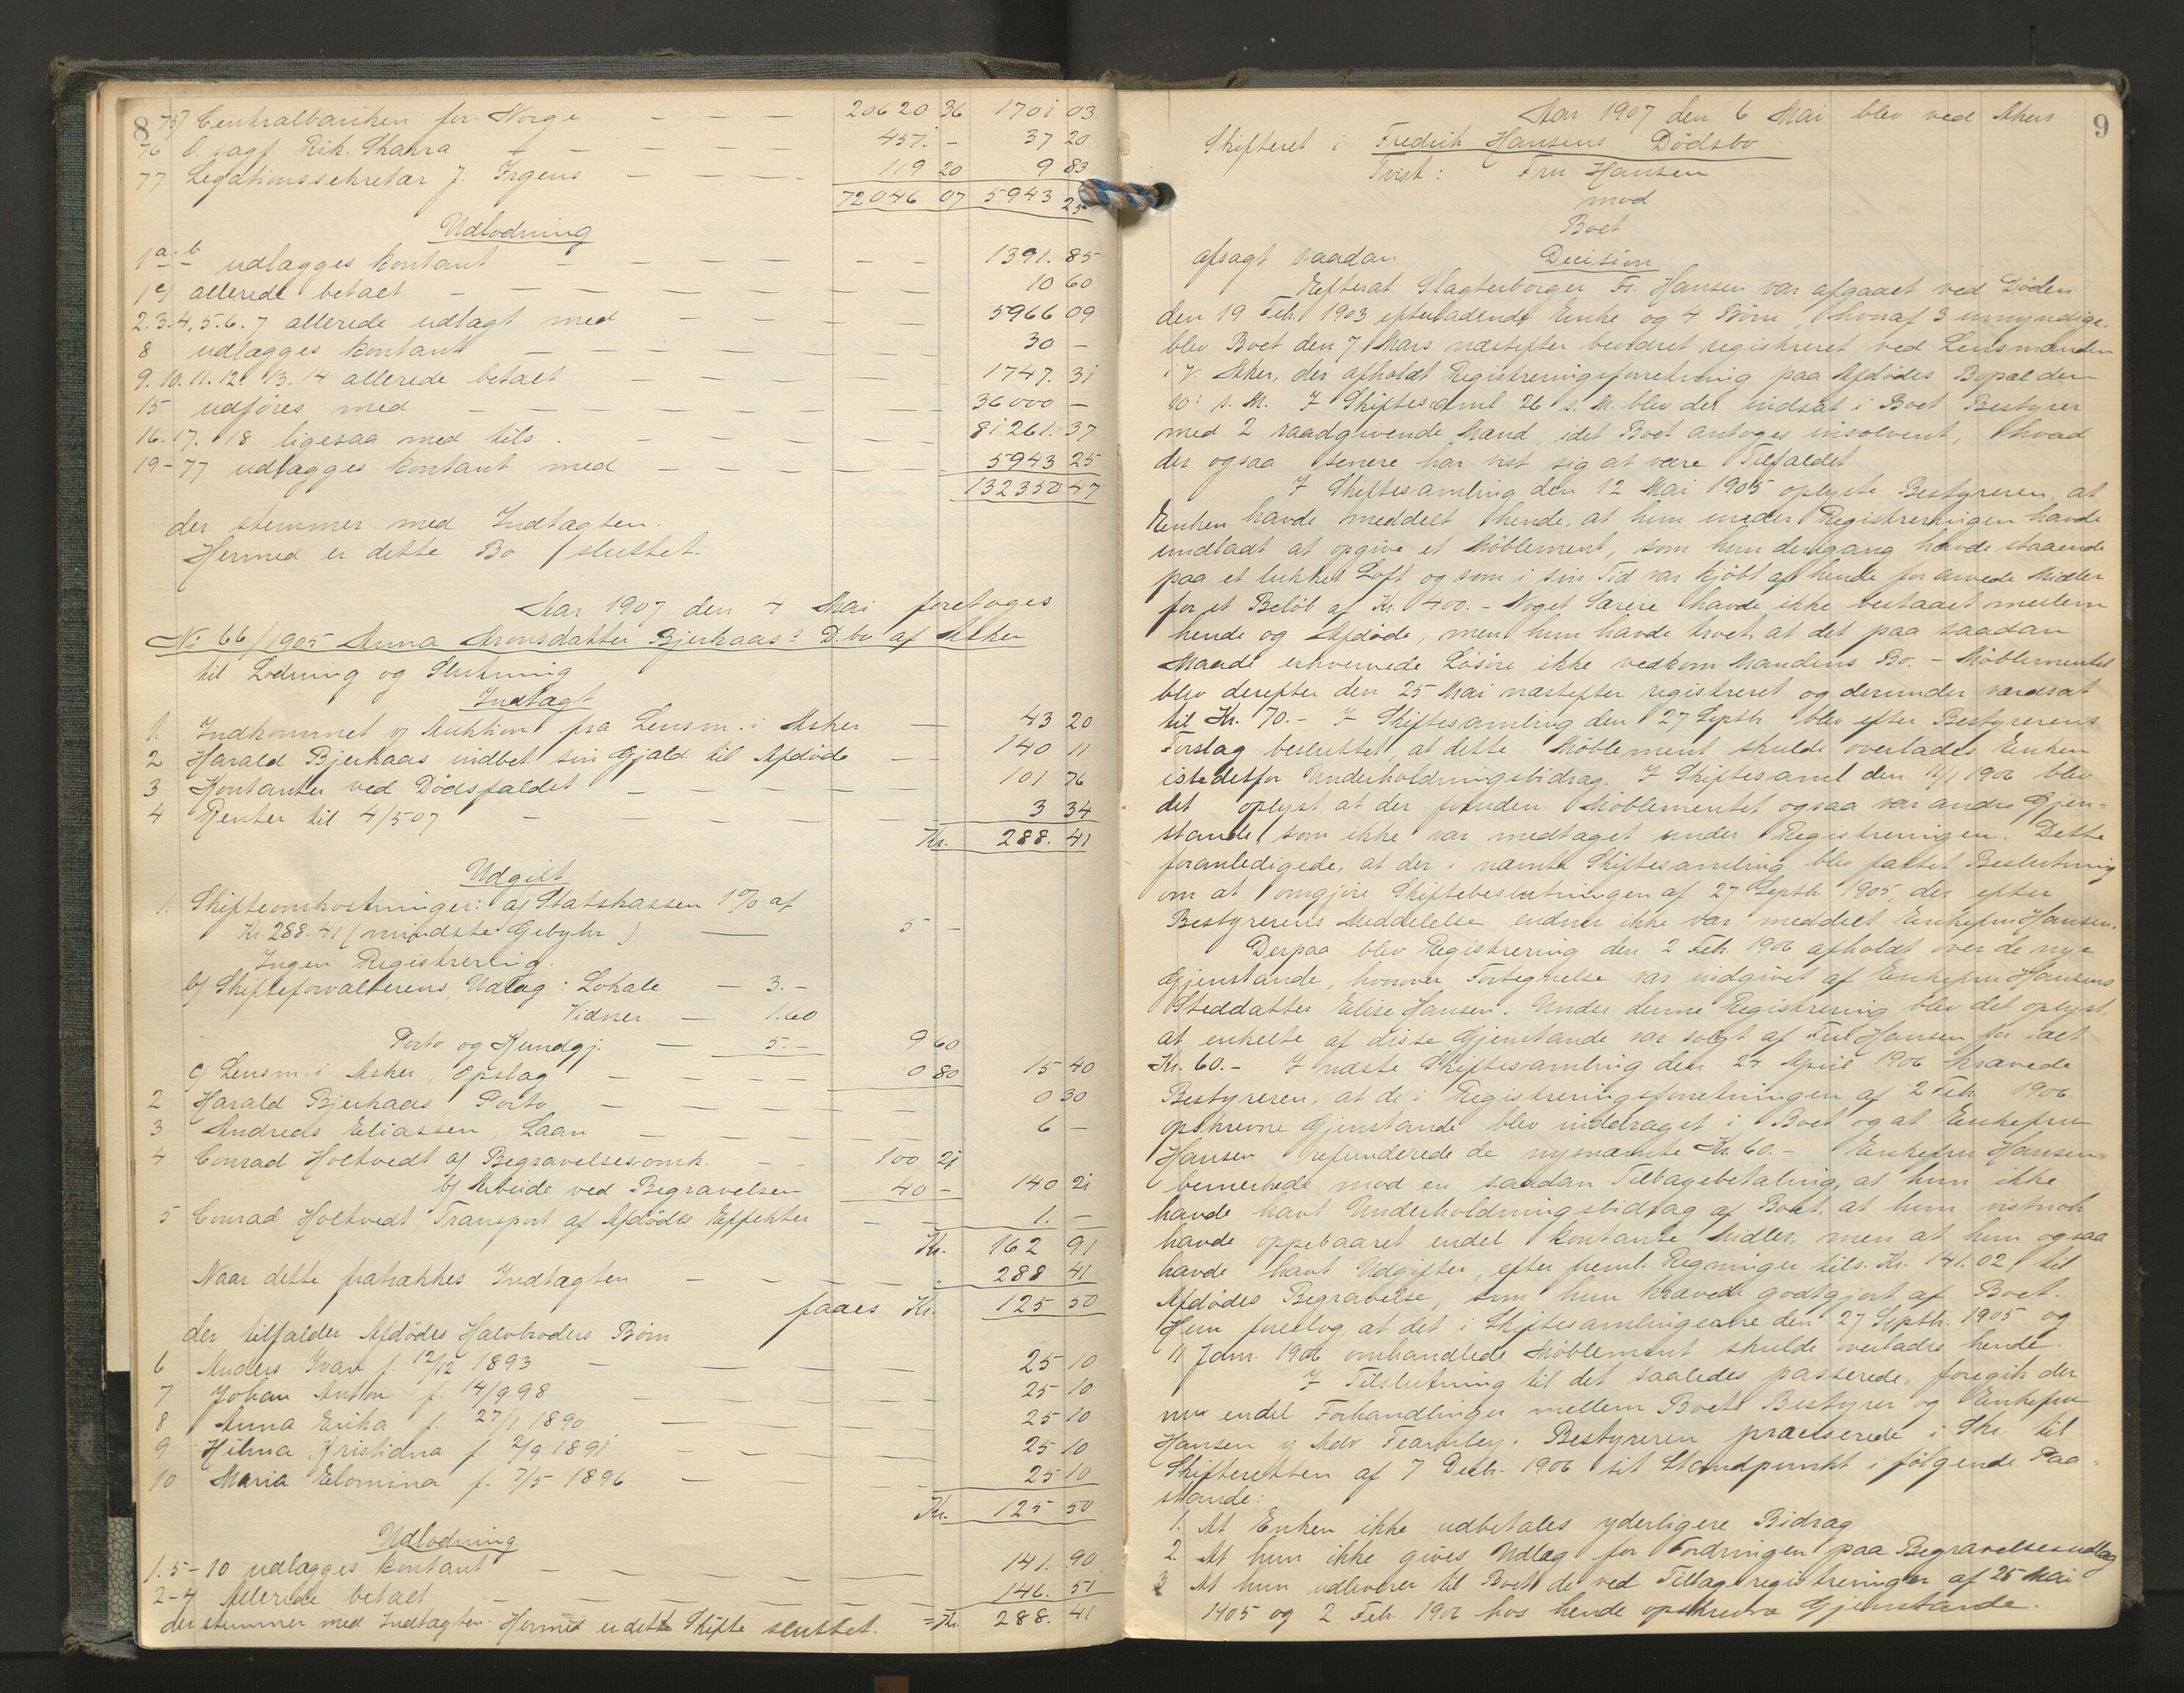 8
75 Centralbanken for Norge — — — 20620 36 1701 03
76 O. sagf. Rik. Skaara — — — 451. - 37 20
77 Legationssekretær J. Irgens — — — 119 20 9 83
72046 07 5943 25
Udlodning
1 a-b udlægges kontant — — — 1391. 85
1 c) allerede betalt — — — 10 60
2.3.4.5.6.7 allerede udlagt med — — — 5966 09
8 udlægges kontant — — — 30 -
9.10.11.12. 13. 14 allerede betalt — — — 1747. 31
15 udføres med — — — 36000 -
16.17. 18 ligesaa med tils. — — — 81261. 37
19-77 udlægges kontant med — — — 5943 25
132350 47
der stemmer med Indtægten.
Hermed er dette Bo sluttet.
Aar 1907 den 4 Mai foretoges
No 66/1905 Anna Aronsdatter Bjerkaas's D.bo af Asker
til Lodning og Slutning
Indtægt
1. Indkommet v Auktion fra Lensm. i Asker — 43 20
2 Harald Bjerkaas indbet. sin Gjæld til Afdøde — 140 11
3 Kontanter ved Dødsfaldet — — — 101 76
4 Renter til 4/5 07 — — — 3 34
Kr. 288. 41
Udgift
1. Skifteomkostninger: a) Statskassen 1% af
Kr 288.41 (mindste Gebyhr) — 5 -
Ingen Registrering.
b) Skifteforvalterens Udlæg: Lokale — 3.-
Vidner — 1.60
Porto og Kundgj. — 5.- 9 60
c) Lensm. i Asker, Opslag — — — 0 80 15 40
2 Harald Bjerkaas, Porto — — — 0 30
3 Andreas Eliassen, Laan — — — 6 -
4 Conrad Holtvedt a) Begravelsesomk. — — 100 21
b) Arbeide ved Begravelsen 40 - 140 21
5 Conrad Holtvedt, Transport af Afdødes Effekter — — 1. -
Kr. 162 91
Naar dette fratrækkes Indtægten — — — " 288 41
faaes Kr. 125 50
der tilfalder Afdødes Halvbroders Børn
6 Anders Ivar f. 12/12 1893 — — — 25 10
7 Johan Anton f. 14/9 98 — — — 25 10
8 Anna Erika f. 27/1 1890 — — — 25 10
9 Hilma Kristiana f 2/9 1891 — — — 25 10
10 Maria Elomina f. 7/5 1896 — — — 25 10
Kr. 125 50
Udlodning
1.5-10 udlægges kontant — — — 141. 90
2-4 Allerede betalt — — — 146. 51
der stemmer med Indtægten. Hermed er dette Skifte sluttet. = Kr. 288. 41
9
Aar 1907 den 6 Mai blev ved Akers
Skifteret i Fredrik Hansens Dødsbo
Tvist: Fru Hansen
mod
Boet
afsagt saadan Decision
Efterat Slagterborger Fr. Hansen var afgaaet ved Døden
den 19 Feb. 1903 efterladende Enke og 4 Børn, hvoraf 3 umyndige,
blev Boet den 7 Mars næstefter beordret registreret ved Lensmanden
i V. Aker, der afholdt Registreringsforretning paa Afdødes Bopæl den
10: s. M. I Skiftesaml. 26 s. M. blev der indsat i Boet Bestyrer
med 2 raadgivende Mænd, idet Boet antoges insolvent, hvad
der ogsaa senere har vist sig at være Tilfældet
I Skiftesamling den 12 Mai 1905 oplyste Bestyreren at
Enken havde meddelt hende, at hun under Registreringen havde
undladt at opgive et Møblement, som hun dengang havde staaende
paa et lukket Loft og som i sin Tid var kjøbt af hende for arvede Midler
for et Beløb af Kr. 400.- Noget Særeie havde ikke bestaaet mellem
hende og Afdøde, men hun havde troet at det paa saadan
Maade erhvervede Løsøre ikke vedkom Mandens Bo. - Møblementet
blev derefter den 25 Mai næstefter registreret og derunder værdsat
til Kr. 70.- I Skiftesamling den 27 Septbr. blev efter Bestyrerens
Forslag besluttet at dette Møblement skulde overlades Enken
istedetfor Underholdningsbidrag. I Skiftesaml den 11/1 1906 blev
det oplyst, at der foruden Møblementet ogsaa var andre Gjen-
stande, som ikke var medtaget under Registreringen. Dette
foranledigede, at der i nævnte Skiftesamling blev fattet Beslutning
om at omgjøre Skiftebeslutningen af 27 Septbr. 1905, der efter
Bestyrerens Meddelelse endnu ikke var meddelt Enkefru Hansen.
Derpaa blev Registrering den 2 Feb. 1906 afholdt over de nye
Gjenstande, hvorover Fortegnelse var indgivet af Enkefru Hansens
Steddatter Elise Hansen. Under denne Registrering blev det oplyst,
at enkelte af disse Gjenstande var solgt af Fru Hansen for ialt
Kr. 60.- I næste Skiftesamling den 27 April 1906 krævede
Bestyreren, at de i Registreringsforretningen af 2 Feb. 1906
opskrevne Gjenstande blev inddraget i Boet og at Enkefru
Hansen refunderede de nysnævnte Kr. 60.- Enkefru Hansen
bemerkede mod en saadan Tilbagebetaling, at hun ikke
havde havt Underholdningsbidrag af Boet, at hun vistnok
havde oppebaaret endel kontante Midler, men at hun ogsaa
havde havt Udgifter, efter freml. Regninger tils. Kr. 141.02, til
Afdødes Begravelse, som hun krævede godtgjort af Boet.
Hun foreslog, at det i Skiftesamlingerne den 27 Septbr. 1905 og
11 Jan. 1906 omhandlede Møblement skulde overlades hende.
I Tilslutning til det saaledes passerede, foregik der
nu endel Forhandlinger mellem Boets Bestyrer og Enkefru
Hansen v Adv Fearnley. Bestyreren præciserede i Skr. til
Skifteretten af 7 Decbr. 1906 sit Standpunkt i følgende Paa-
stande:
1. At Enken ikke udbetales yderligere Bidrag
2. At hun ikke gives Udlæg for Fordringen paa Begravelsesudlæg
3 At hun udleverer til Boet de ved Tillægsregistreringer af 25 Mai
1905 og 2 Feb. 1906 hos hende opskrevne Gjenstande.